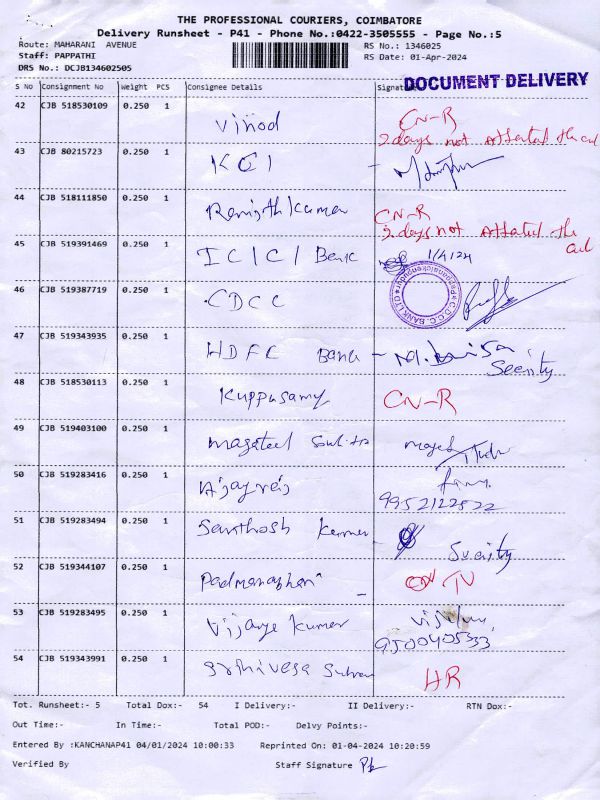 THE PROFESSIONAL COURIERS, COIMBATORE
Delivery Runsheet - P41 - Phone No.:0422-3505555 - Page No.:5
Route: MAHARANI AVENUE
RS No.: 1346025
Staff: PAPPATHI
RS Date: 01-Apr-2024
DRS No.: DCJB134602505
DOCUMENT DELIVERY
S No Consignment No Weight PCS Consignee Details Signature
42 CJB 518530109 0.250 1 Vinod CN-R
2 days not the
43 CJB 80215723 0.250 1 KCI
44 CJB 518111850 0.250 1 Kumar CN-R
2 days not the
45 CJB 519391469 0.250 1 ICICI Bank 1/4/24
46 CJB 519387719 0.250 1 CDCC
C.D.C.C. BANK LTD
47 CJB 519343935 0.250 1 HDFC Bank
48 CJB 518530113 0.250 1 Kuppusamy CN-R
49 CJB 519403100 0.250 1
50 CJB 519283416 0.250 1
9952122522
51 CJB 519283494 0.250 1 Santhosh Kumar
52 CJB 519344107 0.250 1
53 CJB 519283495 0.250 1 Kumar
9500405333
54 CJB 519343991 0.250 1 HR
Tot. Runsheet:- 5 Total Dox:- 54 I Delivery:- II Delivery:- RTN Dox:-
Out Time:- In Time:- Total POD:- Delvy Points:-
Entered By :KANCHANAP41 04/01/2024 10:00:33 Reprinted On: 01-04-2024 10:20:59
Verified By Staff Signature